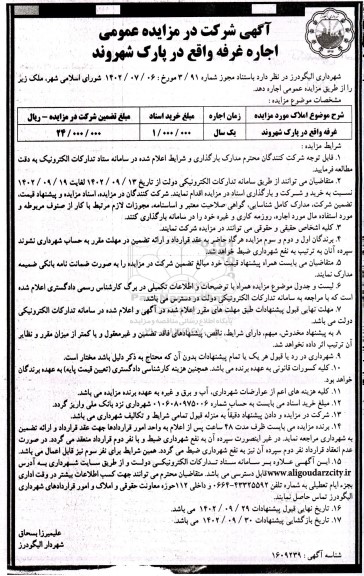 آگهی شرکت در مزایده عمومی
اجاره غرفه واقع در پارک شهروند
شهرداری الیگودرز در نظر دارد باستناد مجوز شماره ۹۱ / ۳ مورخ ۰۶ / ۰۷ / ۱۴۰۲ شورای اسلامی شهر، ملک زیر
را از طریق مزایده عمومی اجاره دهد.
مشخصات موضوع مزایده :
شرح موضوع املاک مورد مزایده زمان اجاره مبلغ خرید اسناد مبلغ تضمین شرکت در مزایده – ریال
غرفه واقع در پارک شهروند یک سال ۱/۰۰۰/۰۰۰ ۲۴/۰۰۰/۰۰۰
شرایط مزایده :
۱. قابل توجه شرکت کنندگان محترم مدارک بارگذاری و شرایط اعلام شده در سامانه ستاد تدارکات الکترونیک به دقت
مطالعه فرمایید.
۲. متقاضیان می توانند از طریق سامانه تدارکات الکترونیکی دولت از تاریخ ۱۳ / ۰۹ / ۱۴۰۲ لغایت ۱۹ / ۰۹ / ۱۴۰۲
نسبت به خرید و شرکت و بارگذاری اسناد در مزایده اقدام نمایند. شرکت کنندگان در مزایده، اسناد مزایده و پیشنهاد قیمت،
تضمین شرکت، مدارک کامل شناسایی، گواهی صلاحیت معتبر و اساسنامه، مجوزات لازم مرتبط با کار از صنوف مربوطه و
مورد استفاده مال مورد اجاره، روزمه کاری و غیره خود را در سامانه بارگذاری کنند.
۳. کلیه اشخاص حقیقی و حقوقی می توانند در مزایده شرکت نمایند.
۴. برندگان اول و دوم و سوم مزایده هرگاه حاضر به عقد قرارداد و ارائه تضمین در مهلت مقرر به حساب شهرداری نشوند
سپرده آنان به ترتیب به نفع شهرداری ضبط خواهد شد.
۵. متقاضیان می بایست همراه پیشنهاد قیمت خود مبالغ تضمین شرکت در مزایده را به صورت ضمانت نامه بانکی ضمیمه
مدارک نمایند.
۶. لیست و جدول موضوع مزایده همراه با توضیحات و اطلاعات تکمیلی در برگ کارشناس رسمی دادگستری اعلام شده
است که با مراجعه به سامانه تدارکات الکترونیکی دولت در دسترس می باشد.
۷. مهلت نهایی قبول پیشنهادات طبق مهلت های مقرر اعلام شده در آگهی و اعلام شده در سامانه تدارکات الکترونیکی
دولت می باشد.
۸. به پیشنهاد مخدوش، مبهم، دارای شرایط، ناقص، پیشنهادهای فاقد تضمین و غیرمعقول و یا کمتر از میزان مقرر و نظایر
آن ترتیب اثر داده نخواهد شد.
۹. شهرداری در رد یا قبول هر یک یا تمام پیشنهادات بدون آن که محتاج به ذکر دلیل باشد مختار است.
۱۰. کلیه کسورات قانونی به عهده برنده می باشد. همچنین هزینه کارشناسی دادگستری (تعیین قیمت پایه) به عهده برندگان
خواهد بود
۱۱. کلیه هزینه های اعم از عوارضات شهرداری، آب و برق و غیره به عهده برنده مزایده می باشد.
۱۲. مبلغ خرید اسناد می بایست به حساب شماره شهرداری نزد بانک ملی واریز گردد.
۱۳. شرکت در مزایده و دادن پیشنهاد دقیقاً به منزله قبول تمامی شرایط و تکالیف شهرداری می باشد.
۱۴. برنده مزایده می بایست ظرف مدت ۴۸ ساعت پس از اعلام به واحد امور قراردادها جهت عقد قرارداد و ارائه تضمین
به شهرداری مراجعه نماید. در غیر اینصورت سپرده آن به نفع شهرداری ضبط و با نفر دوم قرارداد منعقد می گردد. در صورت
عدم انعقاد قرارداد نفر دوم سپرده آن نیز به نفع شهرداری ضبط می گردد. همین شرایط برای نفر سوم نیز قابل اعمال می باشد.
۱۵. این آگهی علاوه بر سامانه ستاد تدارکات الکترونیکی دولت و از طریق سایت شهرداری به آدرس
www.aligoudarzcity.ir قابل دسترسی می باشد. متقاضیان محترم می توانند جهت کسب اطلاعات بیشتر در وقت اداری
بجزء ایام تعطیلی به شماره تلفن ۴۳۳۲۵۵۹۲-۰۶۶ و داخلی ۱۱۲ حوزه معاونت حقوقی و املاک و امور قراردادهای شهرداری
الیگودرز تماس حاصل نمایند.
۱۶. تاریخ نهایی قبول پیشنهادات ۲۹ / ۰۹ / ۱۴۰۲ می باشد.
۱۷. تاریخ بازگشایی پیشنهادات ۳۰ / ۰۹ / ۱۴۰۲ می باشد.
علیمیرزا بسحاق
شهردار الیگودرز
شناسه آگهی : ۱۶۰۹۲۳۹